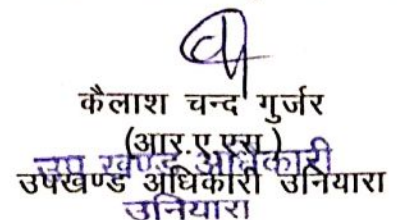 कैलाश चन्द गुर्जर
(आर.ए.एस.)
उप खण्ड अधिकारी
उपखण्ड अधिकारी उनियारा
उनियारा